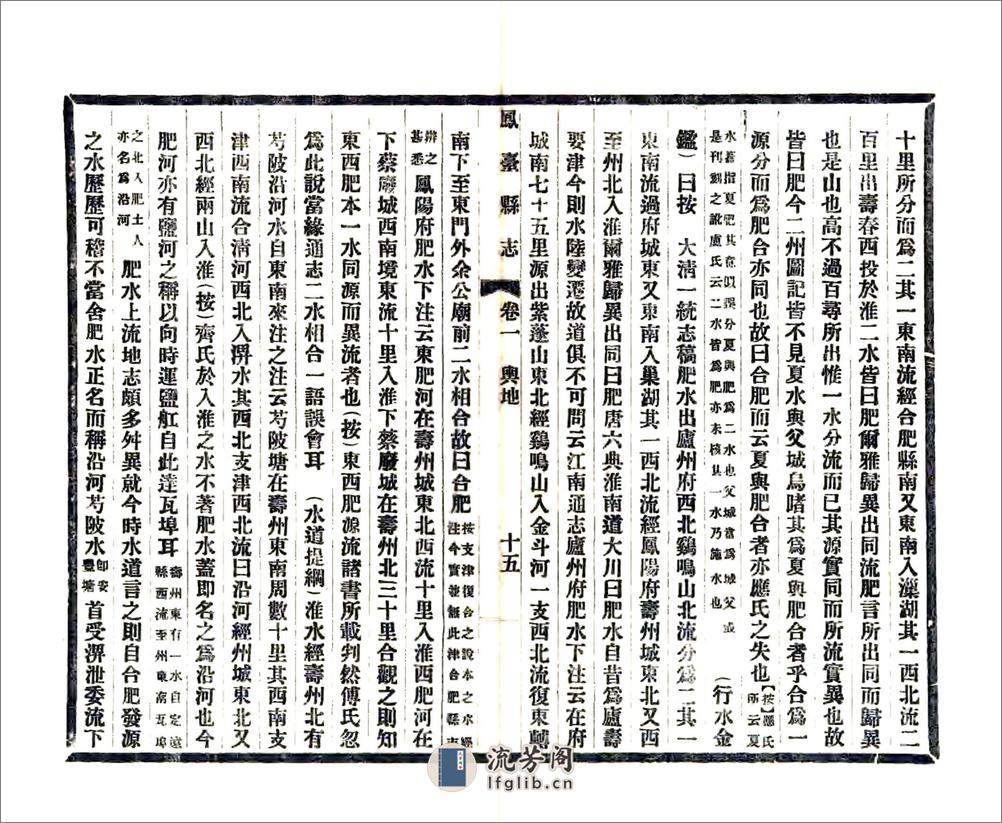 十里所分而為二其一東南流經合肥縣南又東南入巢湖其一西北流二
百里出壽春西投於淮二水皆曰肥爾雅歸異出同流肥言所出同而歸異
也是山也高不過百尋所出惟一水分流而已其源實同而所流實異也故
皆曰肥今二州圖記皆不見夏水與父城烏睹其為夏與肥合者乎合為一
源分而為肥合亦同也故曰合肥而云夏與肥合者亦應氏之失也【按】應氏所云夏
水蓋指夏肥其意以誤分夏與肥為二水也父城當為城父或
是刊刻之訛盧氏云二水皆為肥亦未核其一水乃施水也 （行水金
鑑）曰按 大清一統志稿肥水出廬州府西北鷄鳴山北流分為二其一
東南流過府城東又東南入巢湖其一西北流經鳳陽府壽州城東北又西
至州北入淮爾雅歸異出同曰肥唐六典淮南道大川曰肥水自昔為廬壽
要津今則水陸變遷故道俱不可問云江南通志廬州府肥水下注云在府
城南七十五里源出紫蓬山東北經鷄鳴山入金斗河一支西北流復東轉
鳳臺縣志 卷一 輿地 十五
南下至東門外余公廟前二水相合故曰合肥按支津復合之說本之水經注今實並無此津合肥縣志
辨之甚悉 鳳陽府肥水下注云東肥河在壽州城東北西流十里入淮西肥河在
下蔡廢城西南境東流十里入淮下蔡廢城在壽州北三十里合觀之則知
東西肥本一水同源而異流者也（按）東西肥源流諸書所載判然傅氏忽
為此說當緣通志二水相合一語誤會耳 （水道提綱）淮水經壽州北有
芍陂沿河水自東南來注之注云芍陂塘在壽州東南周數十里其西南支
津西南流合淸河西北入淠水其西北支津西北流曰沿河經州城東北又
西北經兩山入淮（按）齊氏於入淮之水不著肥水蓋即名之為沿河也今
肥河亦有鹽河之稱以向時運鹽舡自此達瓦埠耳壽州東有一水自定遠縣西流至州東南瓦埠
之北入肥土人亦名為沿河 肥水上流地志頗多舛異就今時水道言之則自合肥發源
之水歷歷可稽不當舍肥水正名而稱沿河芍陂水即安豐塘 首受淠泄委流下
流芳阁
lfglib.cn